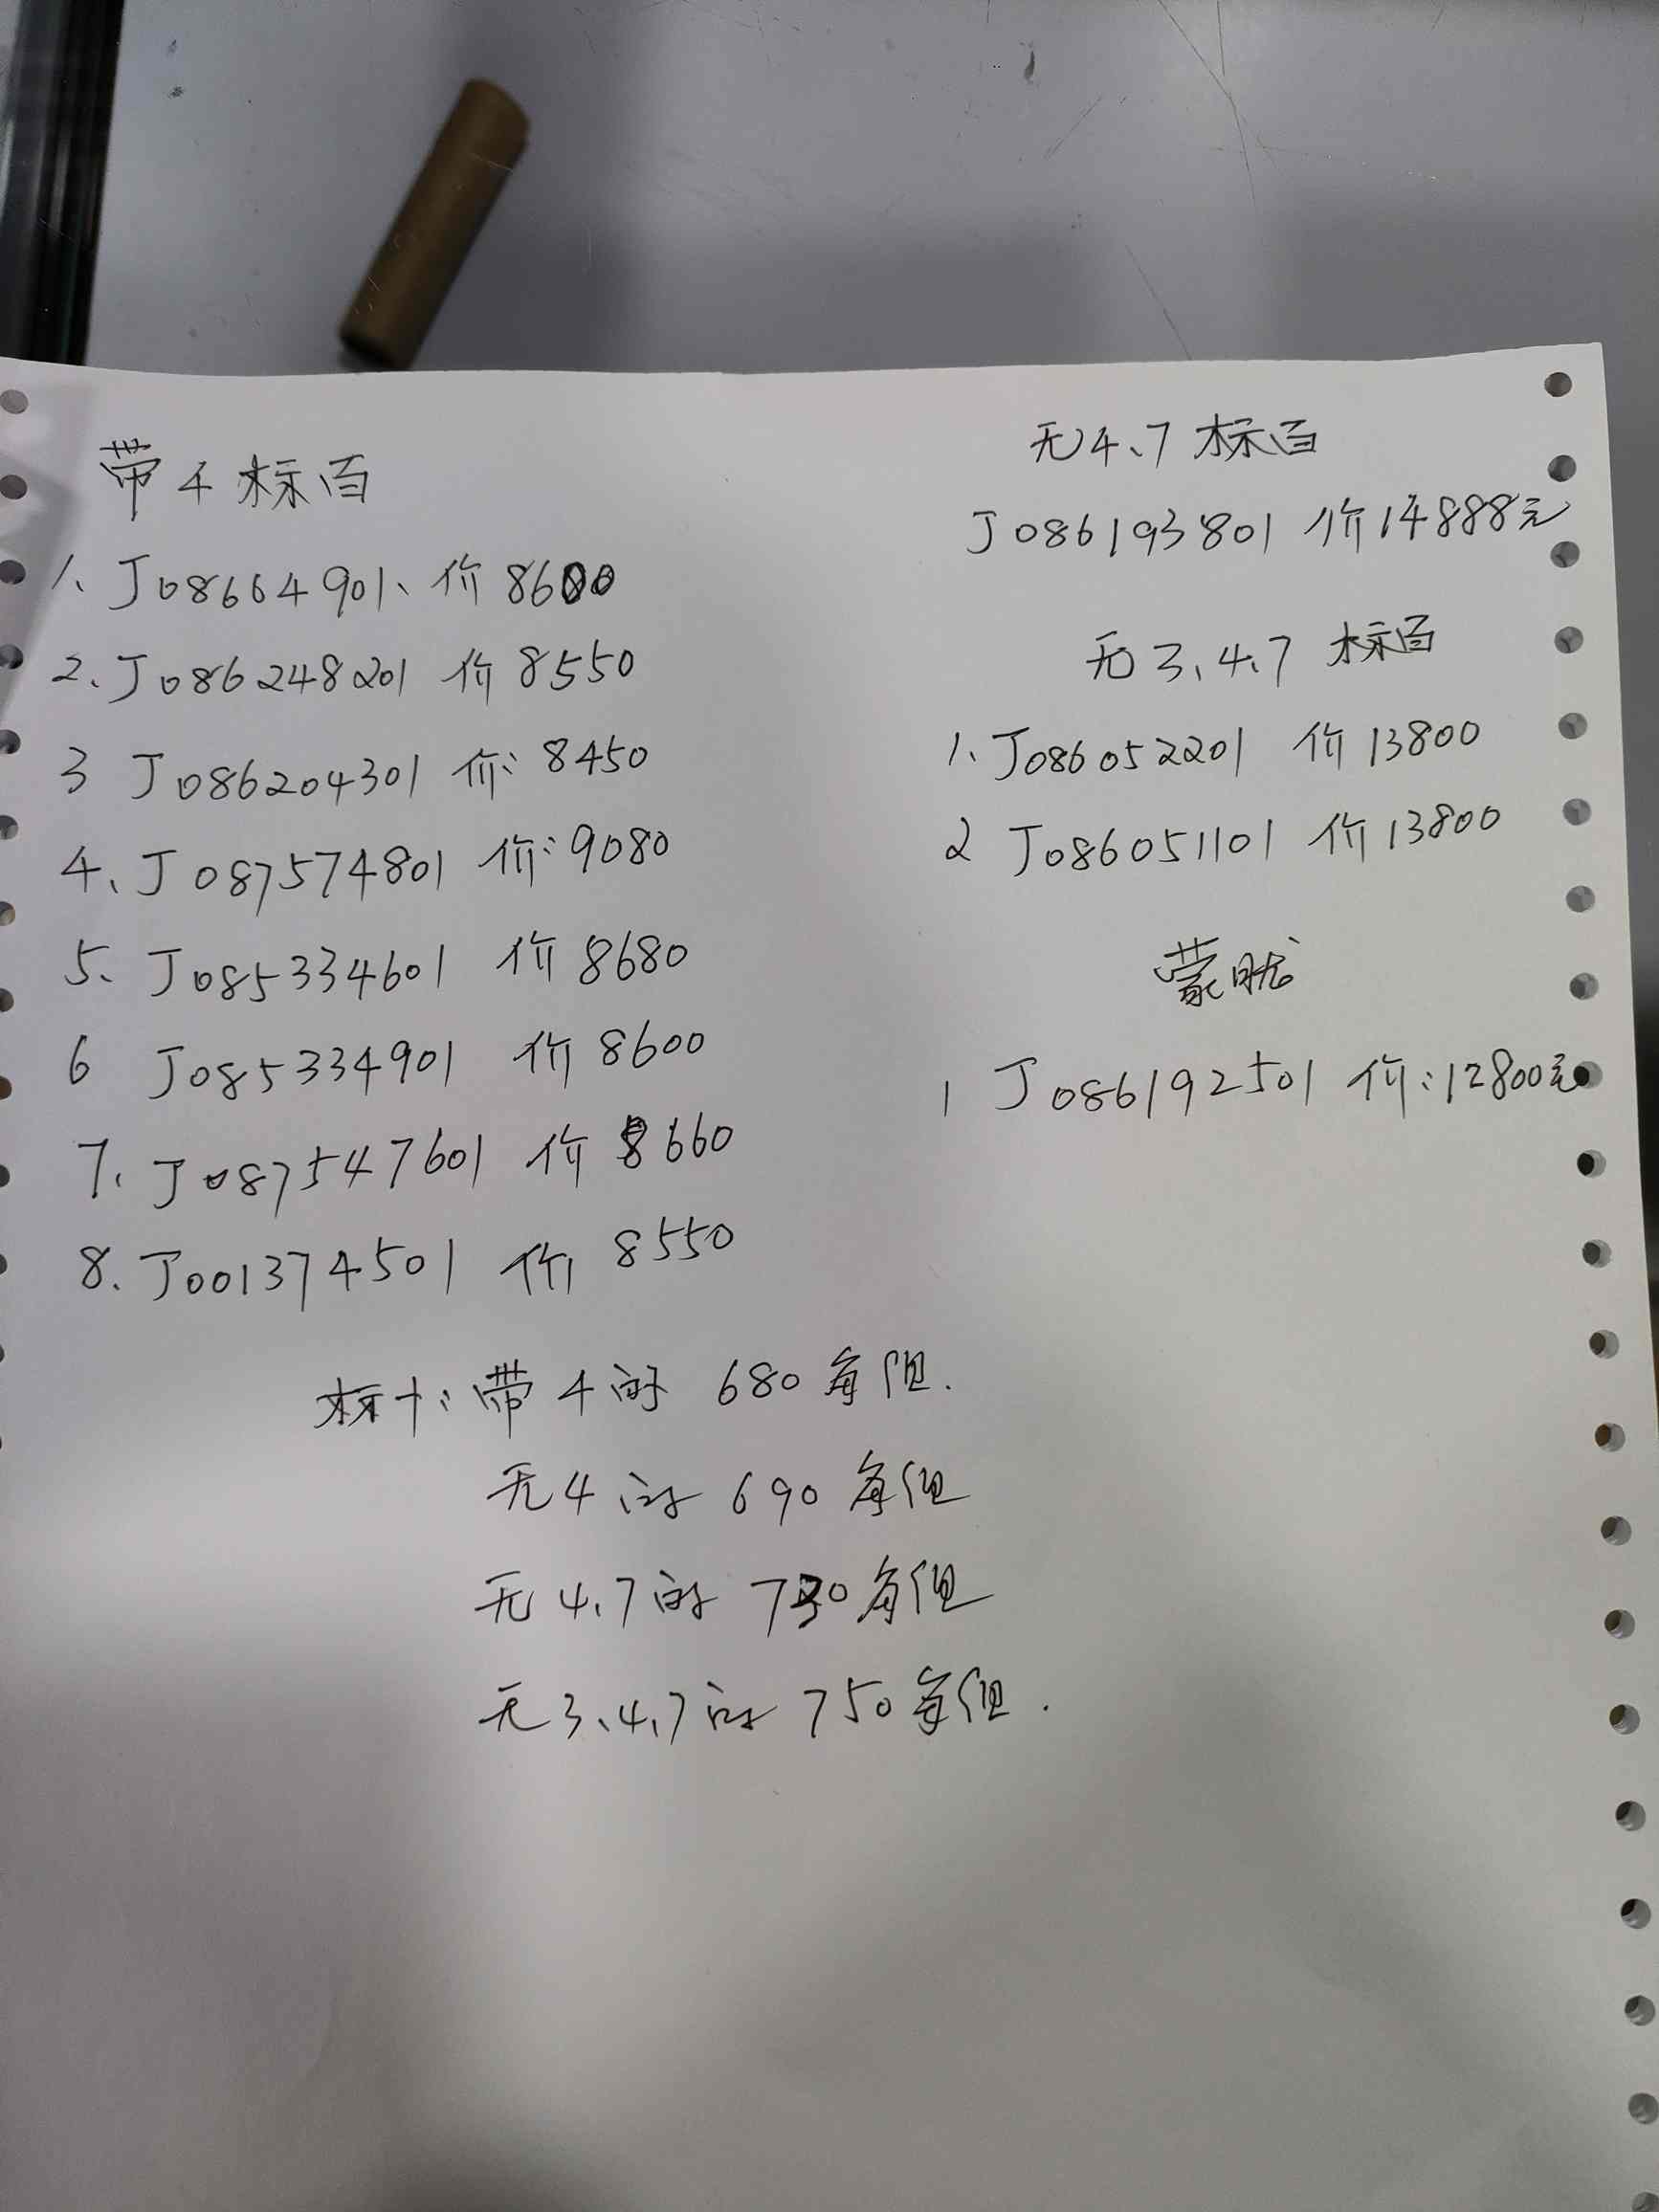 带4标百
1、J08664901、价8600
2、J086248201 价8550
3 J086204301 价:8450
4、J087574801 价:9080
5、J085334601 价8680
6 J085334901 价8600
7、J087547601 价8660
8.J001374501 价8550
无4、7标百
J086193801 价14888元
无3、4、7标百
1、J086052201 价13800
2 J086051101 价13800
蒙胧
1 J086192501 价:12800元
标十:带4的 680每组.
无4的 690每组
无4、7的 730每组
无3、4、7的 750每组.